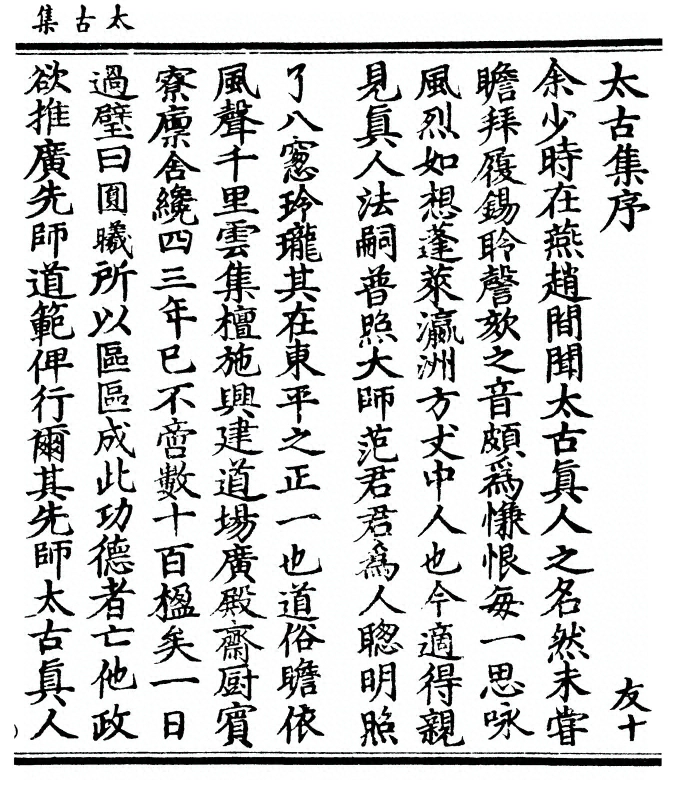 太古集
太古集序
友十
余少時在燕趙間聞太古眞人之名然未甞
瞻拜履錫聆謦欬之音頗爲慊恨每一思咏
風烈如想蓬萊瀛洲方丈中人也今適得親
見眞人法嗣普照大師范君君爲人聰明照
了八窻玲瓏其在東平之正一也道俗瞻依
風聲千里雲集檀施興建道場廣殿齋厨賓
寮廪舍纔四三年已不啻數十百楹矣一日
過璧曰圓曦所以區區成此功德者亡他政
欲推廣先師道範俾行爾其先師太古眞人